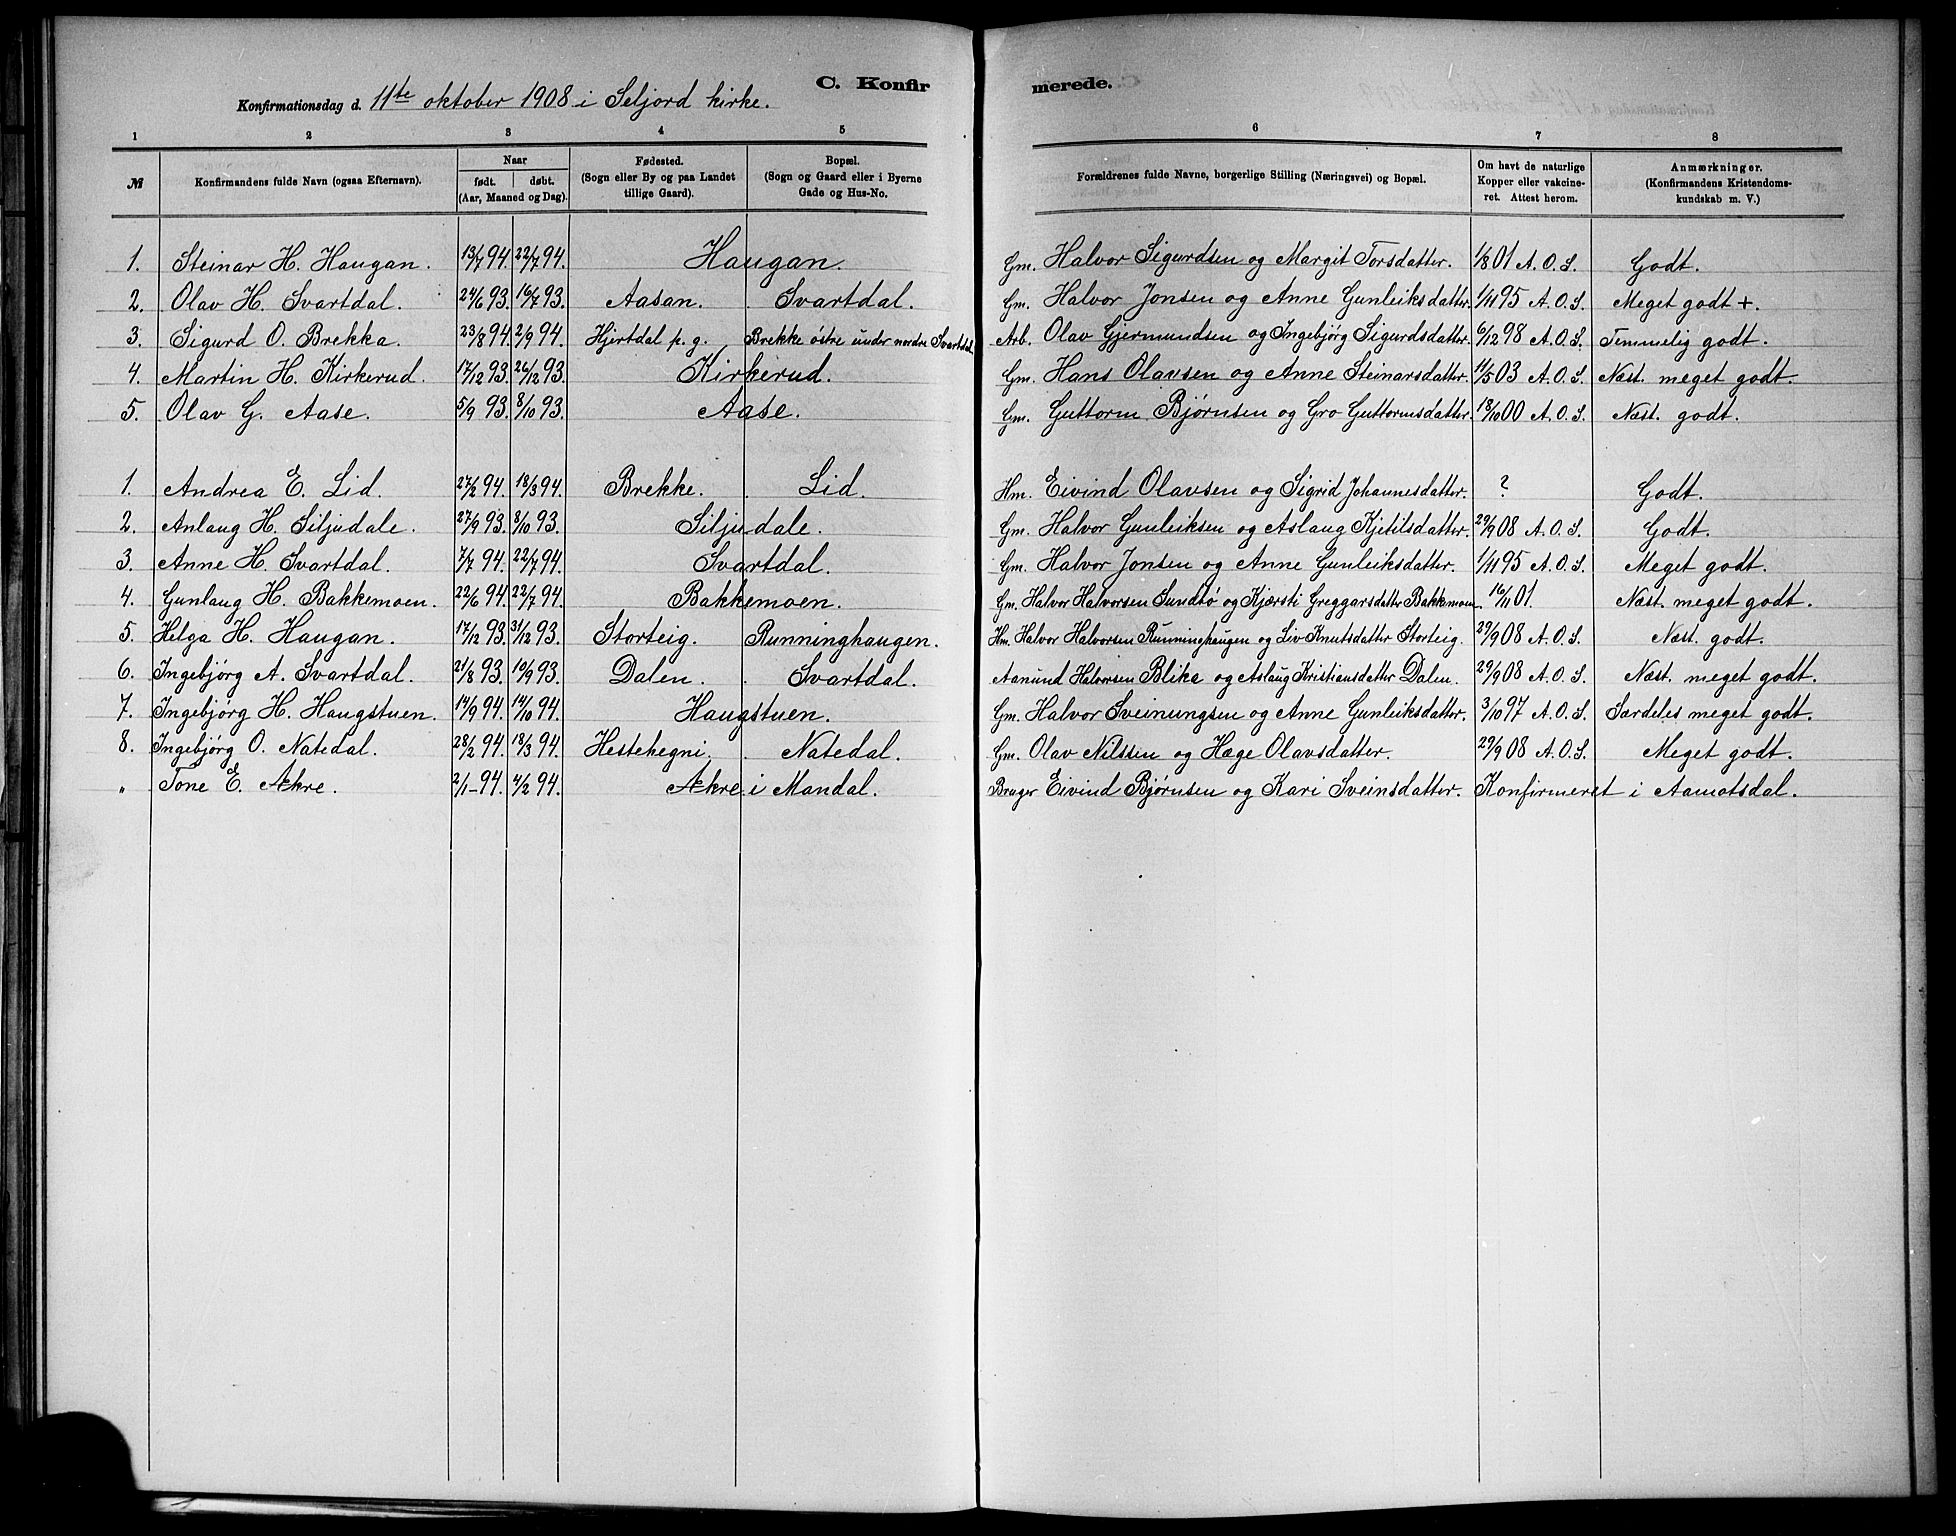 C. Konfir merede.
Konfirmationsdag d. 11te oktober 1908 i Seljord kirke.
1 2 3 4 5 6 7 8
№ Konfirmandens fulde Navn (ogsaa Efternavn). Naar født. døbt. (Aar, Maaned og Dag). Fødested. (Sogn eller By og paa Landet tillige Gaard). Bopæl. (Sogn og Gaard eller i Byerne Gade og Hus-No. Forældrenes fulde Navne, borgerlige Stilling (Næringsvei) og Bopæl. Om havt de naturlige Kopper eller vakcineret. Attest herom. Anmærkninger. (Konfirmandens Kristendomskundskab m. V.)
1. Steinar H. Haugan. 13/7 94. 22/7 94. Haugan. Gm. Halvor Sigurdsen og Margit Torsdatter. 1/8 01 A. O. S. Godt.
2. Olav H. Svartdal. 24/6 93. 16/7 93. Aasan. Svartdal. Gm. Halvor Jonsen og Anne Gunleiksdatter. 1/11 95 A. O. S. Meget godt +.
3. Sigurd O. Brekka. 23/8 94. 2/9 94. Hjertdal p. g. Brekke östre under nordre Svartdal. Arb. Olav Gjermundsen og Ingebjörg Sigurdsdatter. 6/12 98 A. O. S. Temmelig godt.
4. Martin H. Kirkerud. 17/12 93. 26/12 93. Kirkerud. Gm. Hans Olavsen og Anne Steinarsdatter. 11/5 03 A. O. S. Næst. meget godt.
5. Olav G. Aase. 5/9 93. 8/10 93. Aase. Gm. Guttorm Bjørnsen og Gro Guttormsdatter. 18/10 00 A. O. S. Næst. godt.
1. Andrea E. Lid. 27/2 94. 18/3 94. Brekke. Lid. Hm. Eivind Olavsen og Sigrid Johannesdatter. ? Godt.
2. Anlaug H. Siljudale. 27/9 93. 8/10 93. Siljudale. Gm. Halvor Gunleiksen og Aslaug Kjetilsdatter. 29/9 08 A. O. S. Godt.
3. Anne H. Svartdal. 7/7 94. 22/7 94. Svartdal. Gm. Halvor Jonsen og Anne Gunleiksdatter. 1/11 95 A. O. S. Meget godt.
4. Gunlaug H. Bakkemoen. 22/6 94. 22/7 94. Bakkemoen. Gm. Halvor Halvorsen Sundbö og Kjærsti Greggarsdatter Bakkemoen. 16/11 01. Næst. meget godt.
5. Helga H. Haugan. 17/12 93. 31/12 93. Storteig. Runninghaugen. Hm. Halvor Halvorsen Runninghaugen og Liv Knutsdatter Storteig. 29/9 08 A. O. S. Næst. godt.
6. Ingebjörg A. Svartdal. 21/8 93. 10/9 93. Dalen. Svartdal. Aanund Halvorsen Blika og Aslaug Kristiansdatter Dalen. 29/9 08 A. O. S. Næst. meget godt.
7. Ingebjörg H. Haugstuen. 14/9 94. 14/10 94. Haugstuen. Gm. Halvor Sveinungsen og Anne Gunleiksdatter. 3/10 97 A. O. S. Særdeles meget godt.
8. Ingebjörg O. Natedal. 28/2 94. 18/3 94. Hestehegni. Natedal. Gm. Olav Nilssen og Hæge Olavsdatter. 29/9 08 A. O. S. Meget godt.
" Tone E. Ækre. 2/1 94. 4/2 94. Ækre i Mandal. Bruger Eivind Bjørnsen og Kari Sveinsdatter. Konfirmeret i Aamotsdal.